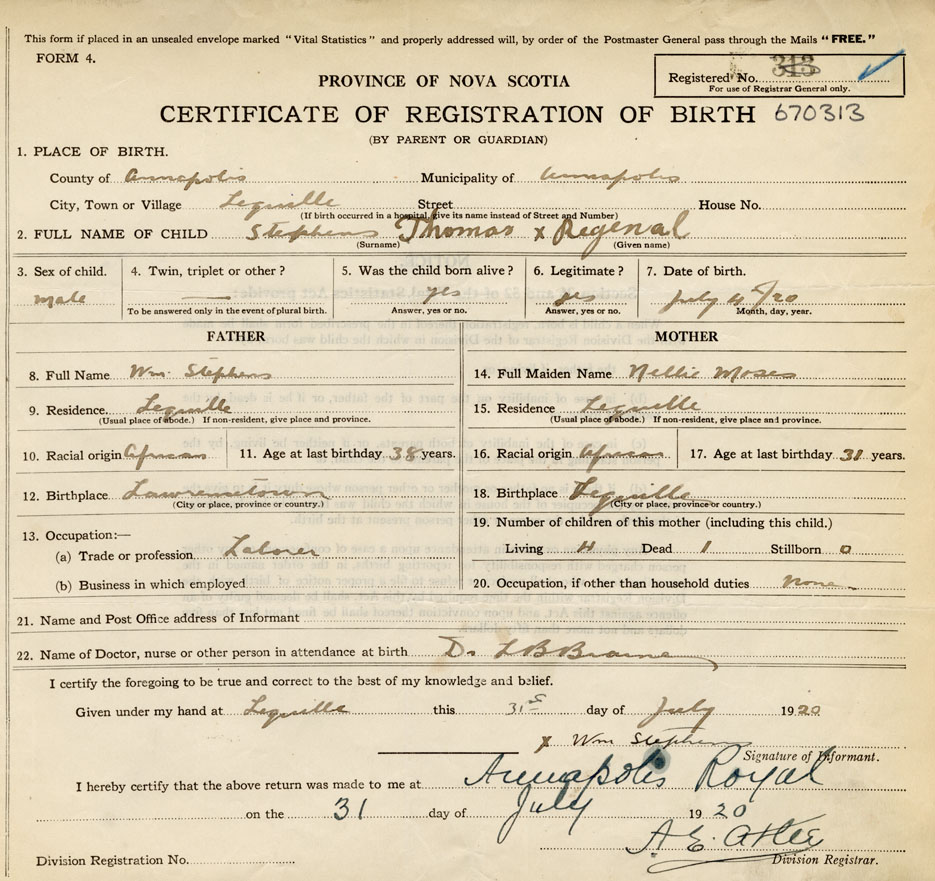 This form if placed in an unsealed envelope marked "Vital Statistics" and properly addressed will, by order of the Postmaster General pass through the Mails "FREE."
FORM 4.
Registered No. 313
For use of Registrar General only.
PROVINCE OF NOVA SCOTIA
CERTIFICATE OF REGISTRATION OF BIRTH 670313
(BY PARENT OR GUARDIAN)
1. PLACE OF BIRTH.
County of Annapolis Municipality of Annapolis
City, Town or Village Lequille Street House No.
(If birth occurred in a hospital, give its name instead of Street and Number)
2. FULL NAME OF CHILD Stephens Thomas x Regenal
(Surname) (Given name)
3. Sex of child. 4. Twin, triplet or other? 5. Was the child born alive? 6. Legitimate? 7. Date of birth.
male — yes yes July 4th/20
To be answered only in the event of plural birth. Answer, yes or no. Answer, yes or no. Month, day, year.
FATHER MOTHER
8. Full Name Wm. Stephens 14. Full Maiden Name Nellie Moses
9. Residence Lequille 15. Residence Lequille
(Usual place of abode.) If non-resident, give place and province. (Usual place of abode.) If non-resident, give place and province.
10. Racial origin African 11. Age at last birthday 38 years. 16. Racial origin African 17. Age at last birthday 31 years.
12. Birthplace Lawrencetown 18. Birthplace Lequille
(City or place, province or country.) (City or place, province or country.)
13. Occupation:— 19. Number of children of this mother (including this child.)
(a) Trade or profession Laborer Living 4 Dead 1 Stillborn 0
(b) Business in which employed 20. Occupation, if other than household duties none
21. Name and Post Office address of Informant
22. Name of Doctor, nurse or other person in attendance at birth Dr L B Braine
I certify the foregoing to be true and correct to the best of my knowledge and belief.
Given under my hand at Lequille this 31st day of July 1920
x Wm Stephens
Signature of Informant.
I hereby certify that the above return was made to me at Annapolis Royal
on the 31 day of July 1920
A. E. Atlee
Division Registration No. Division Registrar.